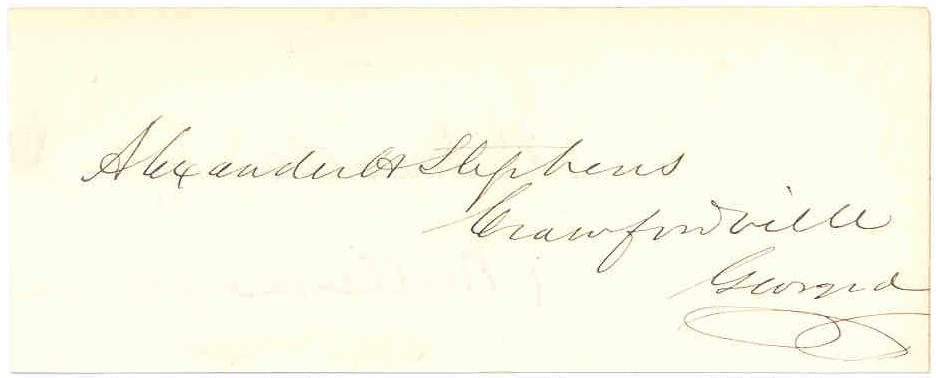 Alexander H Stephens
Crawfordville
Georgia